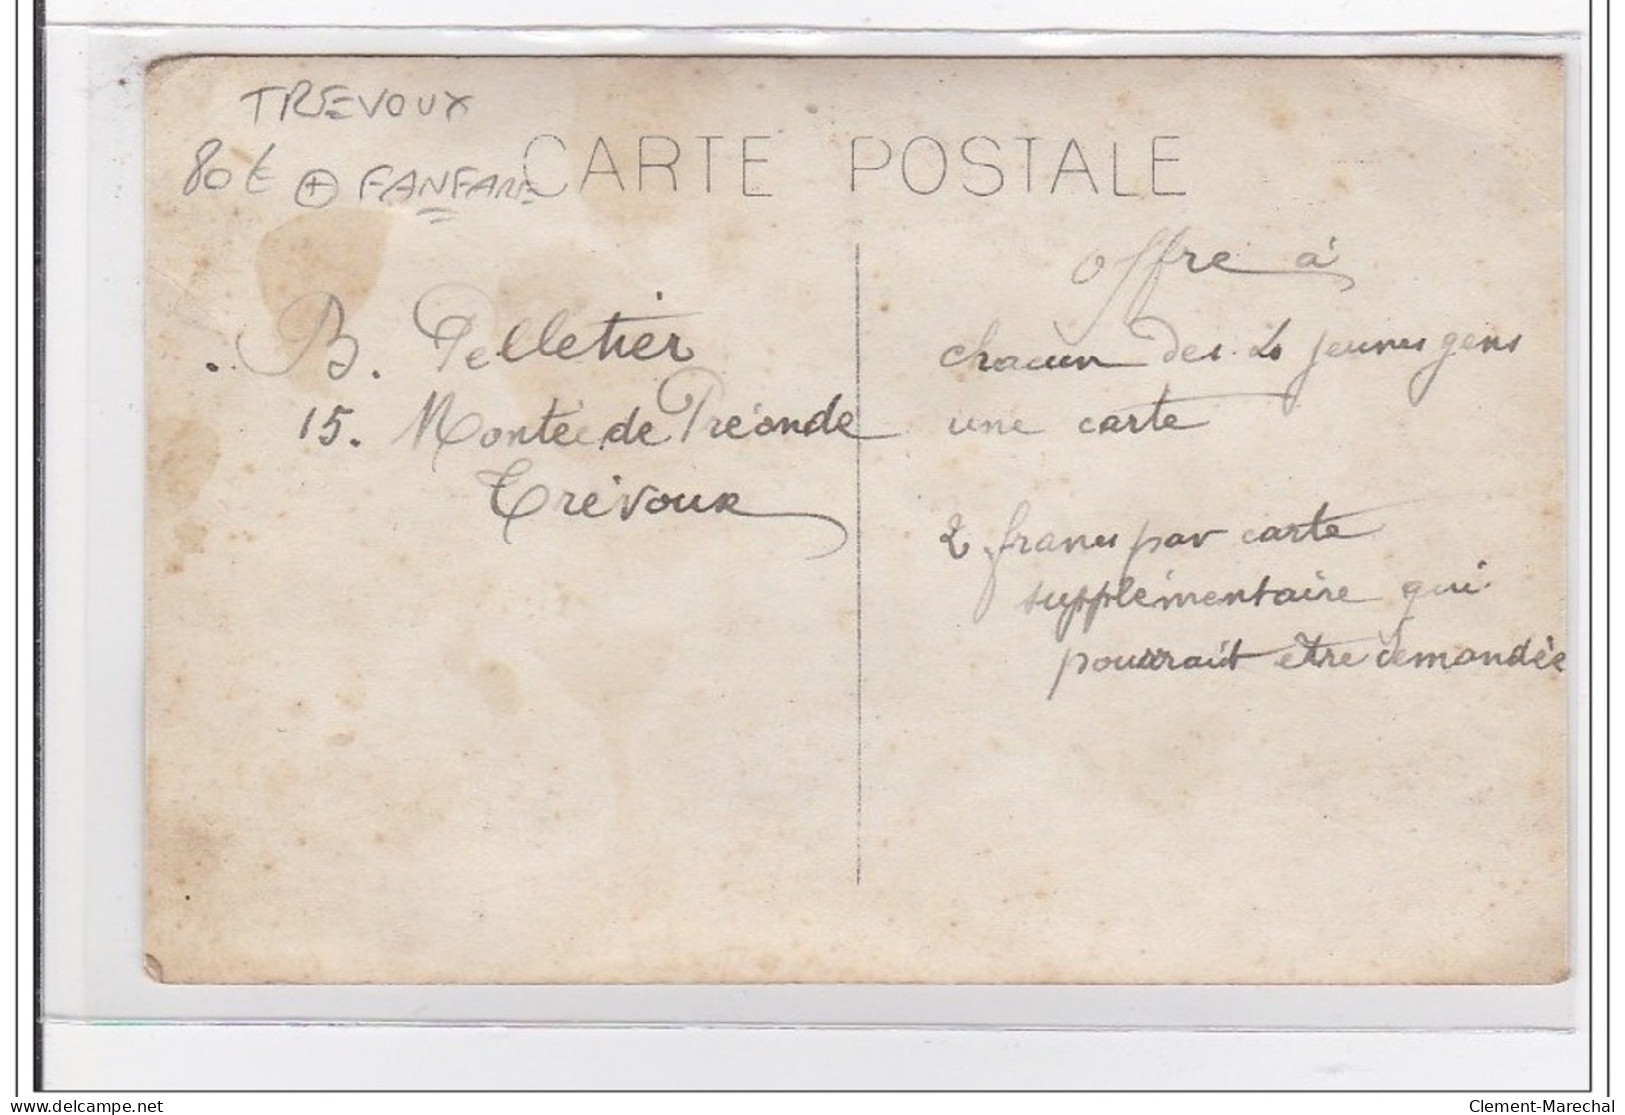 TREVOUX
80€ + FANFARE
CARTE POSTALE
B. Pelletier
15. Montée de Préonde
Trévoux
offre à
chacun des jeunes gens
une carte
2 francs par carte
supplémentaire qui
pourrait être demandée
delcampe.net
Clement-Marechal